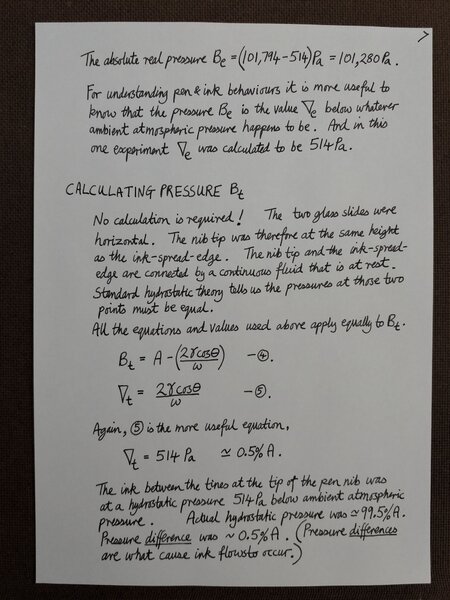 >
The absolute real pressure Be = (101,794 – 514)Pa = 101,280 Pa.
For understanding pen & ink behaviours it is more useful to
know that the pressure Be is the value ∇e below whatever
ambient atmospheric pressure happens to be. And in this
one experiment ∇e was calculated to be 514 Pa.
CALCULATING PRESSURE Bt
No calculation is required! The two glass slides were
horizontal. The nib tip was therefore at the same height
as the ink-spread-edge. The nib tip and the ink-spread-
edge are connected by a continuous fluid that is at rest.
Standard hydrostatic theory tells us the pressures at those two
points must be equal.
All the equations and values used above apply equally to Bt.
Bt = A – (2γcosθ/ω) – ④.
∇t = 2γcosθ/ω – ⑤.
Again, ⑤ is the more useful equation,
∇t = 514 Pa ≃ 0.5% A.
The ink between the tines at the tip of the pen nib was
at a hydrostatic pressure 514 Pa below ambient atmospheric
pressure. Actual hydrostatic pressure was ≃ 99.5% A.
Pressure difference was ~ 0.5% A. (Pressure differences
are what cause ink flows to occur.)